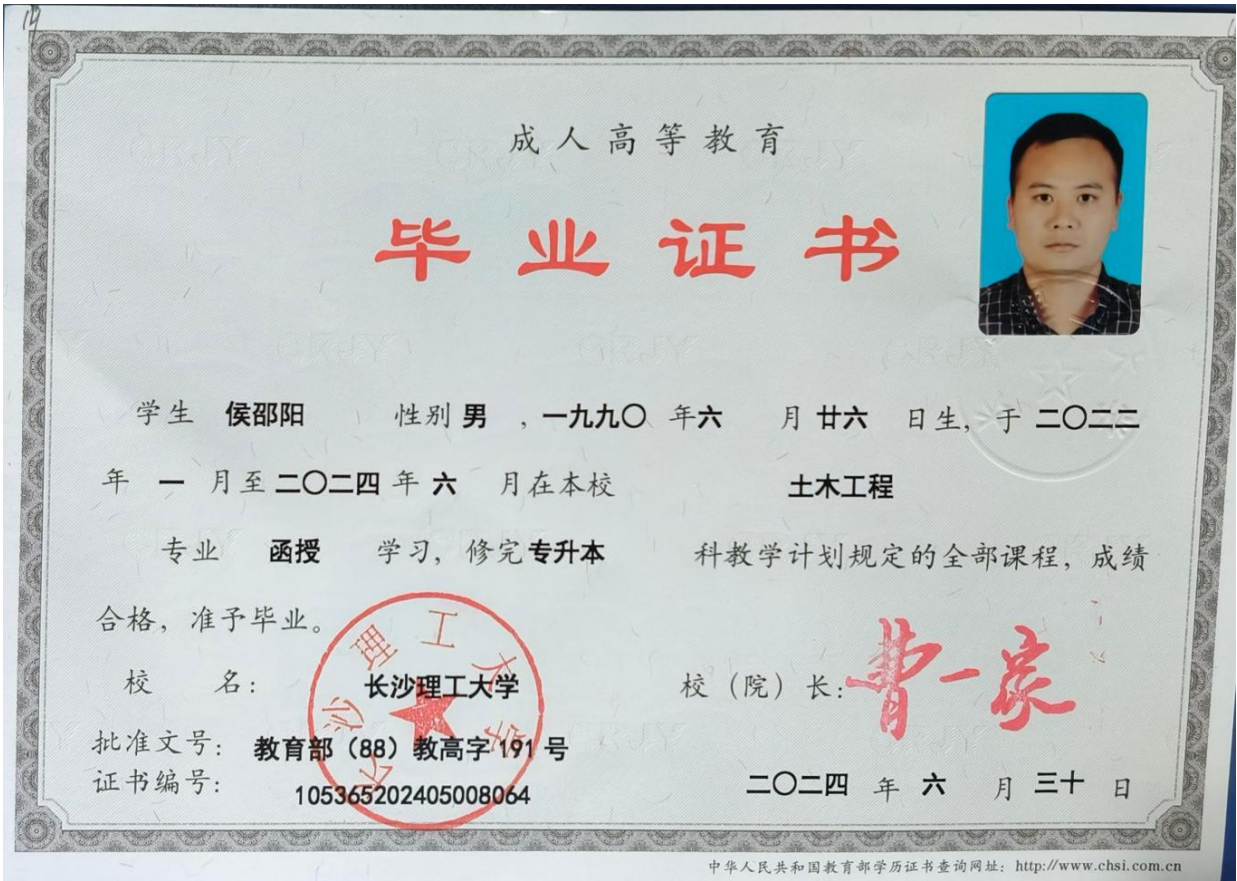 成人高等教育
毕业证书
学生 侯邵阳 性别 男 ，一九九〇 年六 月 廿六 日生，于 二〇二二
年 一 月至 二〇二四 年 六 月在本校 土木工程
专业 函授 学习，修完 专升本 科教学计划规定的全部课程，成绩
合格，准予毕业。
校 名： 长沙理工大学 校（院）长：曹一家
长沙理工大学
批准文号： 教育部（88）教高字 191 号
证书编号： 105365202405008064
二〇二四 年 六 月 三十 日
中华人民共和国教育部学历证书查询网址：http://www.chsi.com.cn